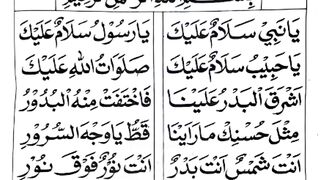 يَا نَبِي سَلَامٌ عَلَيْكَ يَا رَسُوْل سَلَامٌ عَلَيْكَ
يَا حَبِيْب سَلَامٌ عَلَيْكَ صَلَوَاتُ اللهِ عَلَيْكَ
اَشْرَقَ الْبَدْرُ عَلَيْنَا فَاخْتَفَتْ مِنْهُ الْبُدُوْرُ
مِثْلَ حُسْنِكْ مَا رَاَيْنَا قَطُّ يَا وَجْهَ السُّرُوْرِ
اَنْتَ شَمْسٌ اَنْتَ بَدْرٌ اَنْتَ نُوْرٌ فَوْقَ نُوْرٍ